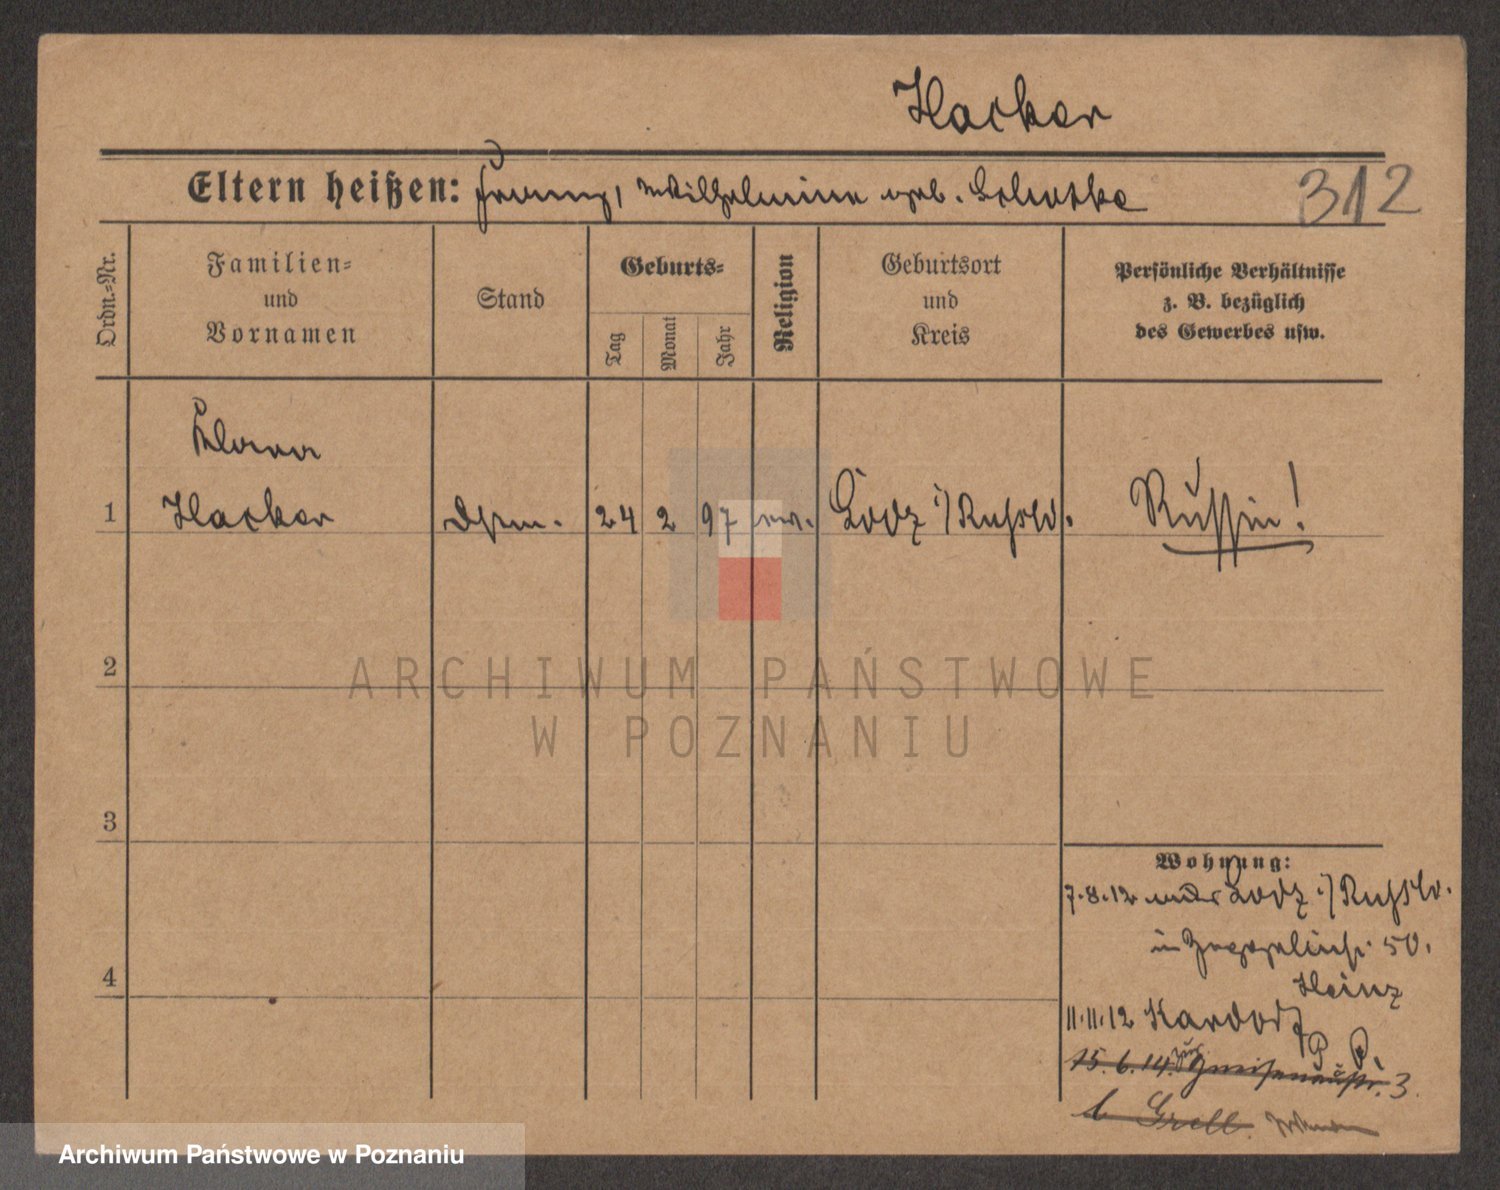 Hacker
Eltern heißen: Franz, Wilhelmine geb. 312
Ordn.-Nr.
Familien-
und
Vornamen
Stand
Geburts-
Tag
Monat
Jahr
Religion
Geburtsort
und
Kreis
Persönliche Verhältnisse
z. B. bezüglich
des Gewerbes usw.
Klara
1 Hacker 24 2 97 ev. Lodz i/Russld. Russin!
2
3
4
Wohnung:
7.8.12 Lodz i/Russld.
in 50.
Heinz
11.11.12 Kardorf
P. P.
15.6.14. Gneisenaustr. 3.
b. Grell.
ARCHIWUM PAŃSTWOWE
W POZNANIU
Archiwum Państwowe w Poznaniu